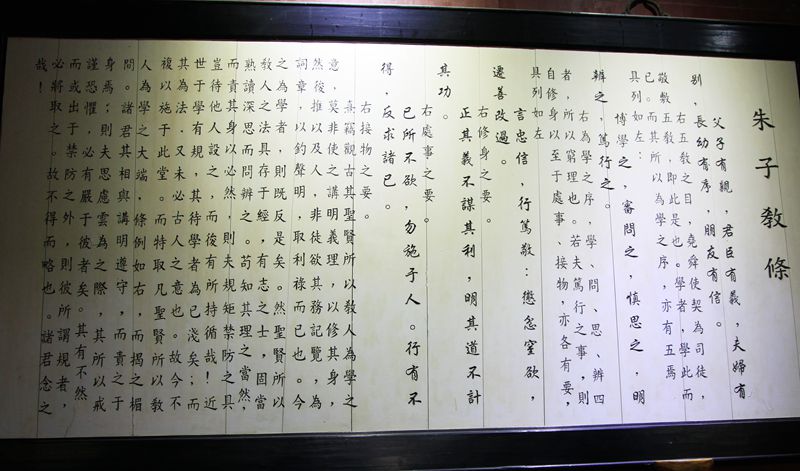 朱子教條
父子有親，君臣有義，夫婦有
別，長幼有序，朋友有信。
右五教之目，堯舜使契為司徒，
敬敷五教，即此是也。學者，學此而
已。而其所以為學之序，亦有五焉
具列如左：
博學之，審問之，慎思之，明
辨之，篤行之。
右為學之序，學、問、思、辨四
者，所以窮理也。若夫篤行之事，則
自修身以至于處事、接物，亦各有要，
具列如左
言忠信，行篤敬；懲忿窒欲，
遷善改過。
右修身之要。
正其義不謀其利，明其道不計
其功。
右處事之要。
己所不欲，勿施于人。行有不
得，反求諸己。
右接物之要。
熹竊觀古其聖賢所以教人為學之
意，莫非使之講明義理，以修其身，
然後推以及人，非徒欲其務記覽，為
詞章，以釣聲明，取利祿而已也。今
之為學者，則既反是矣。然聖賢所以
教人之法，具存于經，有志之士，固當
熟讀深思而問辨之。苟知其理之當然，
而責其身以必然，則夫規矩禁防之具
豈待他人設之，而後有所持循哉！近
世于學有規，其待學者為已淺矣；而
其為法，又未必古人之意也。故今不
複以施于此堂。而特取凡聖賢所以教
人為學之大端，條例如右，而揭之楣
問。諸君其相與講明遵守，而責之于
身焉。則夫思慮雲為之際，其所以戒
謹恐懼，必有嚴于彼者矣。其有不然
而或出于禁防之外，則彼所謂規者，
必將取之，故不得而略也。諸君念之
哉！